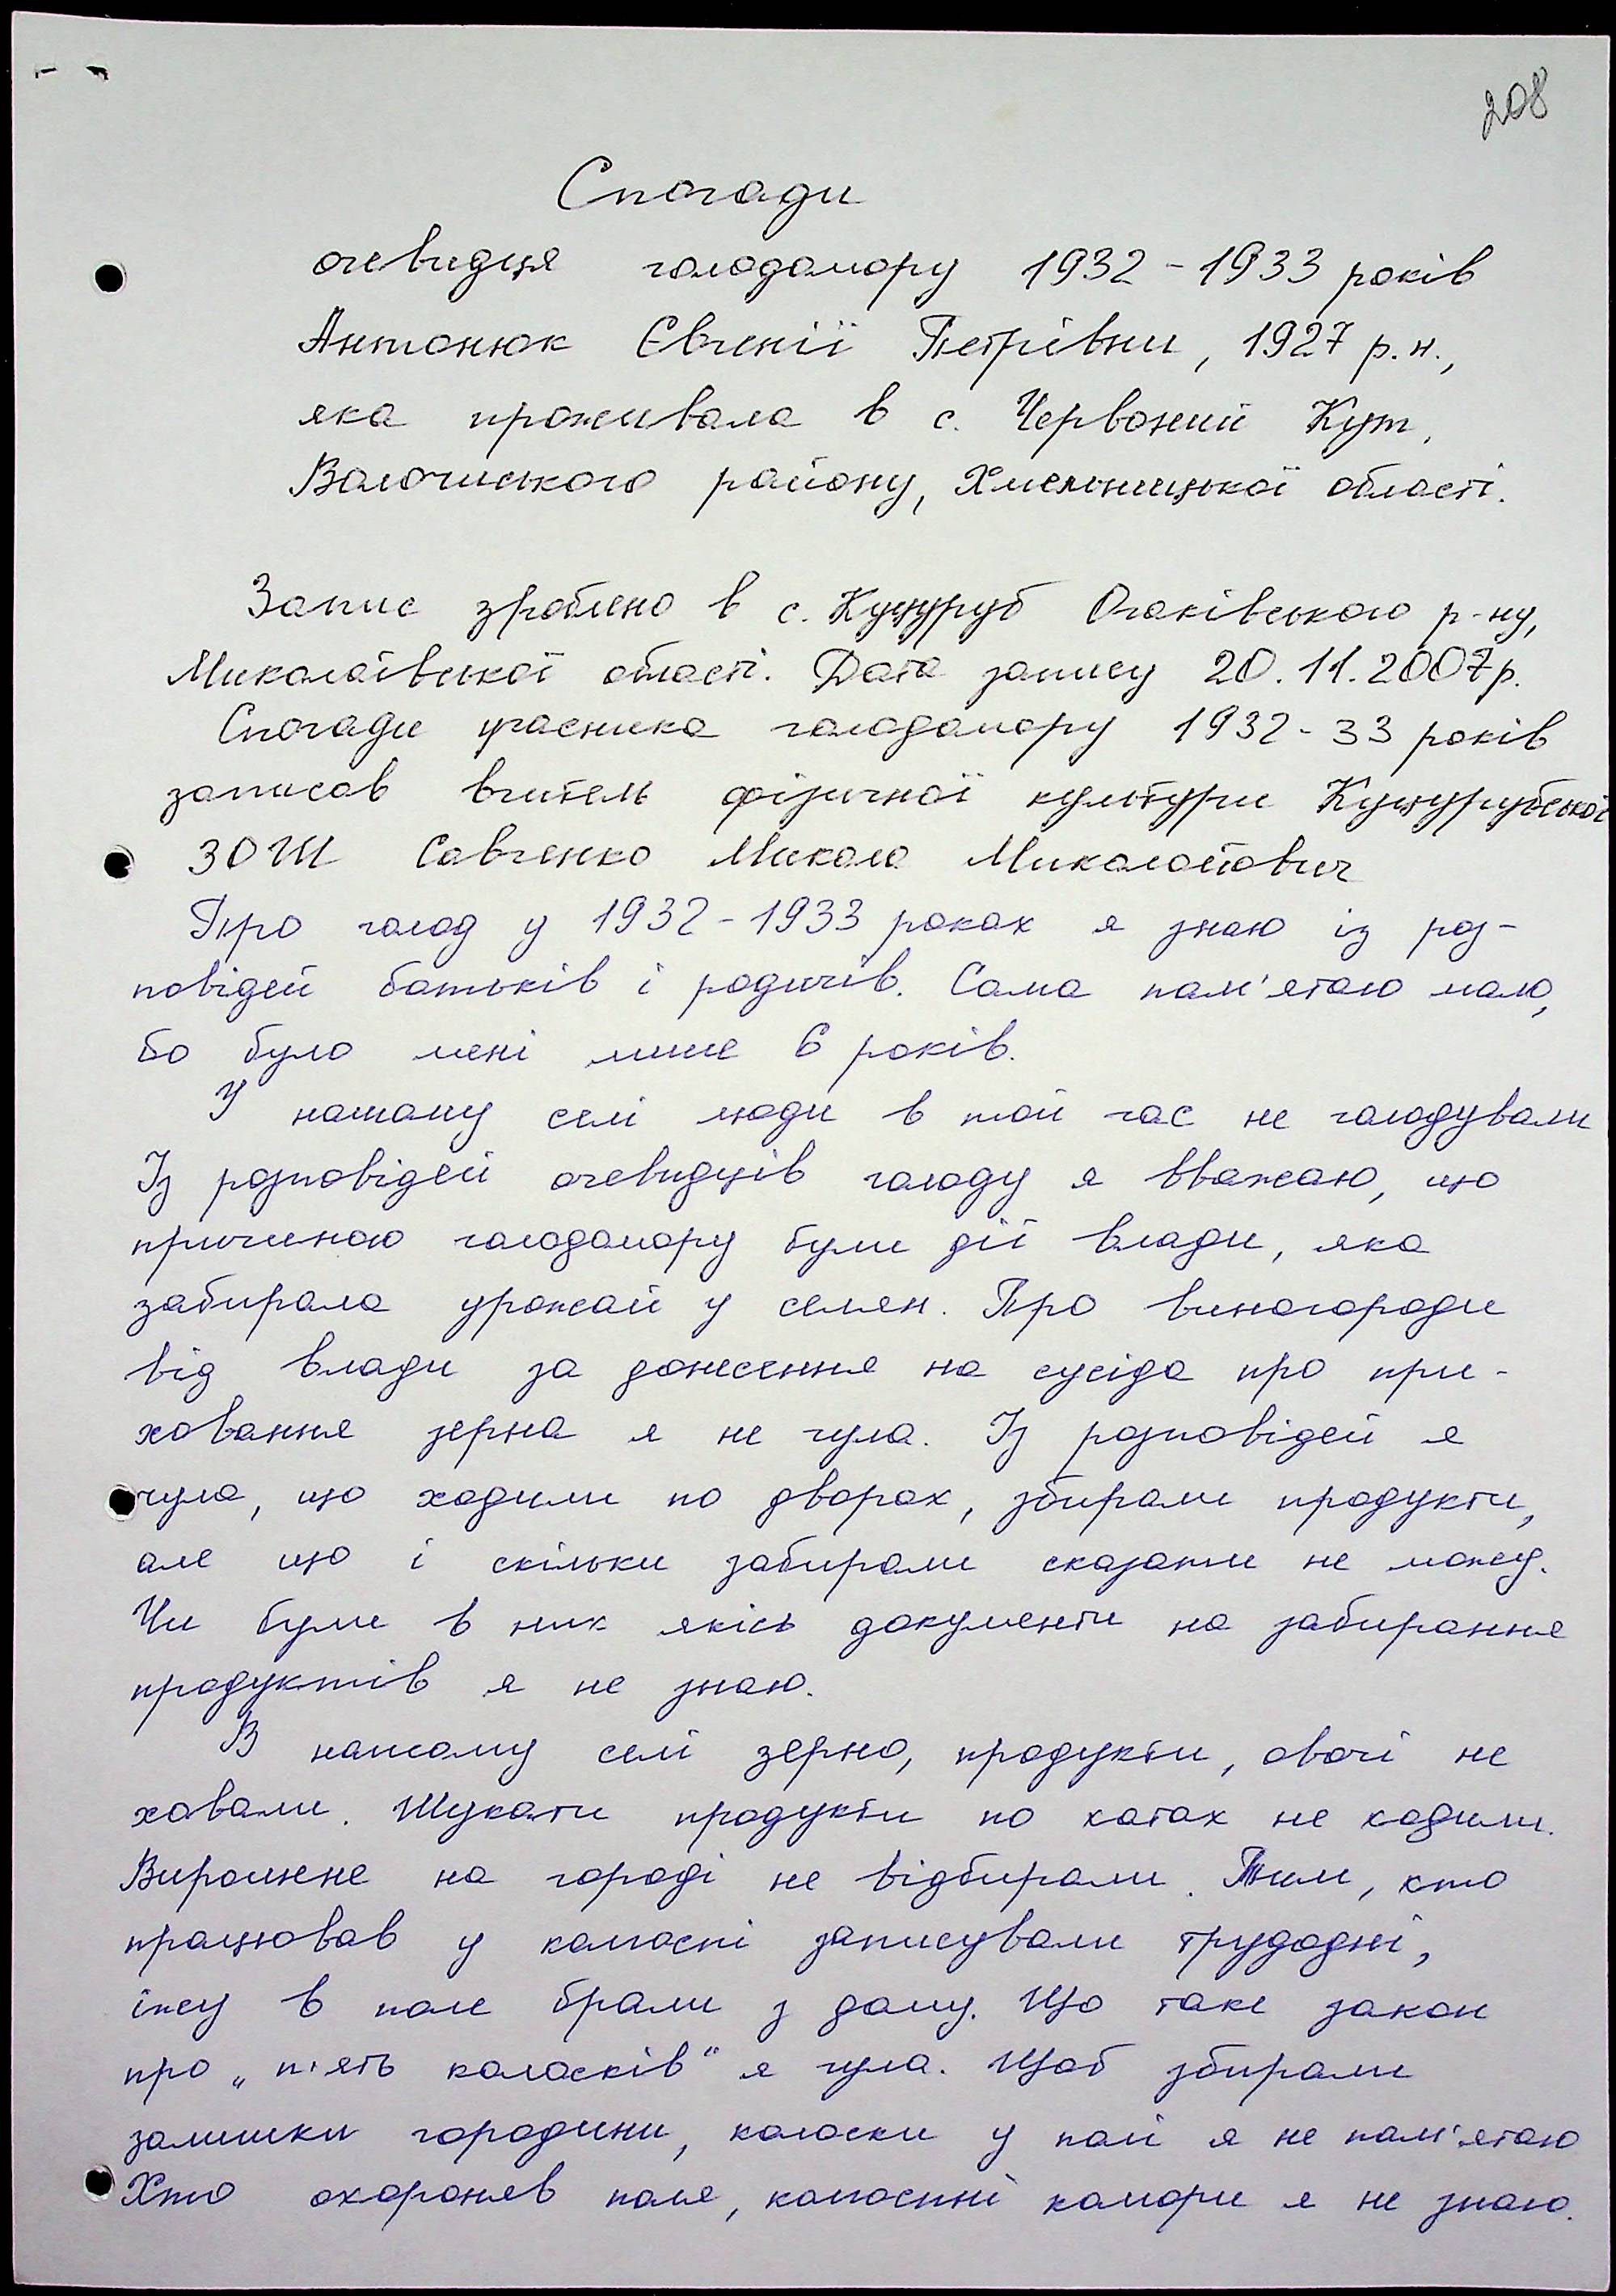 208
Спогади
очевидця голодомору 1932-1933 років
Антонюк Євгенії Петрівни, 1927 р.н.,
яка проживала в с. Червоний Кут,
Волочиського району, Хмельницької області.
Запис зроблено в с. Куцуруб Очаківського р-ну,
Миколаївської області. Дата запису 20.11.2007р.
Спогади учасника голодомору 1932-33 років
записав вчитель фізичної культури Куцурубської
ЗОШ Савченко Микола Миколайович
Про голод у 1932-1933 роках я знаю із роз-
повідей батьків і родичів. Сама пам'ятаю мало,
бо було мені лише 6 років.
У нашому селі люди в той час не голодували
Із розповідей очевидців голоду я вважаю, що
причиною голодомору були дії влади, яка
забирала урожай у селян. Про винагороди
від влади за донесення на сусіда про при-
ховання зерна я не чула. Із розповідей я
чула, що ходили по дворах, збирали продукти,
але що і скільки забирали сказати не можу.
Чи були в них якісь документи на забирання
продуктів я не знаю.
В нашому селі зерно, продукти, овочі не
ховали. Шукати продукти по хатах не ходили.
Вирощене на городі не відбирали. Тим, хто
працював у колгоспі записували трудодні,
їжу в поле брали з дому. Що таке закон
про „п'ять колосків" я чула. Щоб збирали
залишки городини, колоски у полі я не пам'ятаю
Хто охороняв поля, колгоспні комори я не знаю.